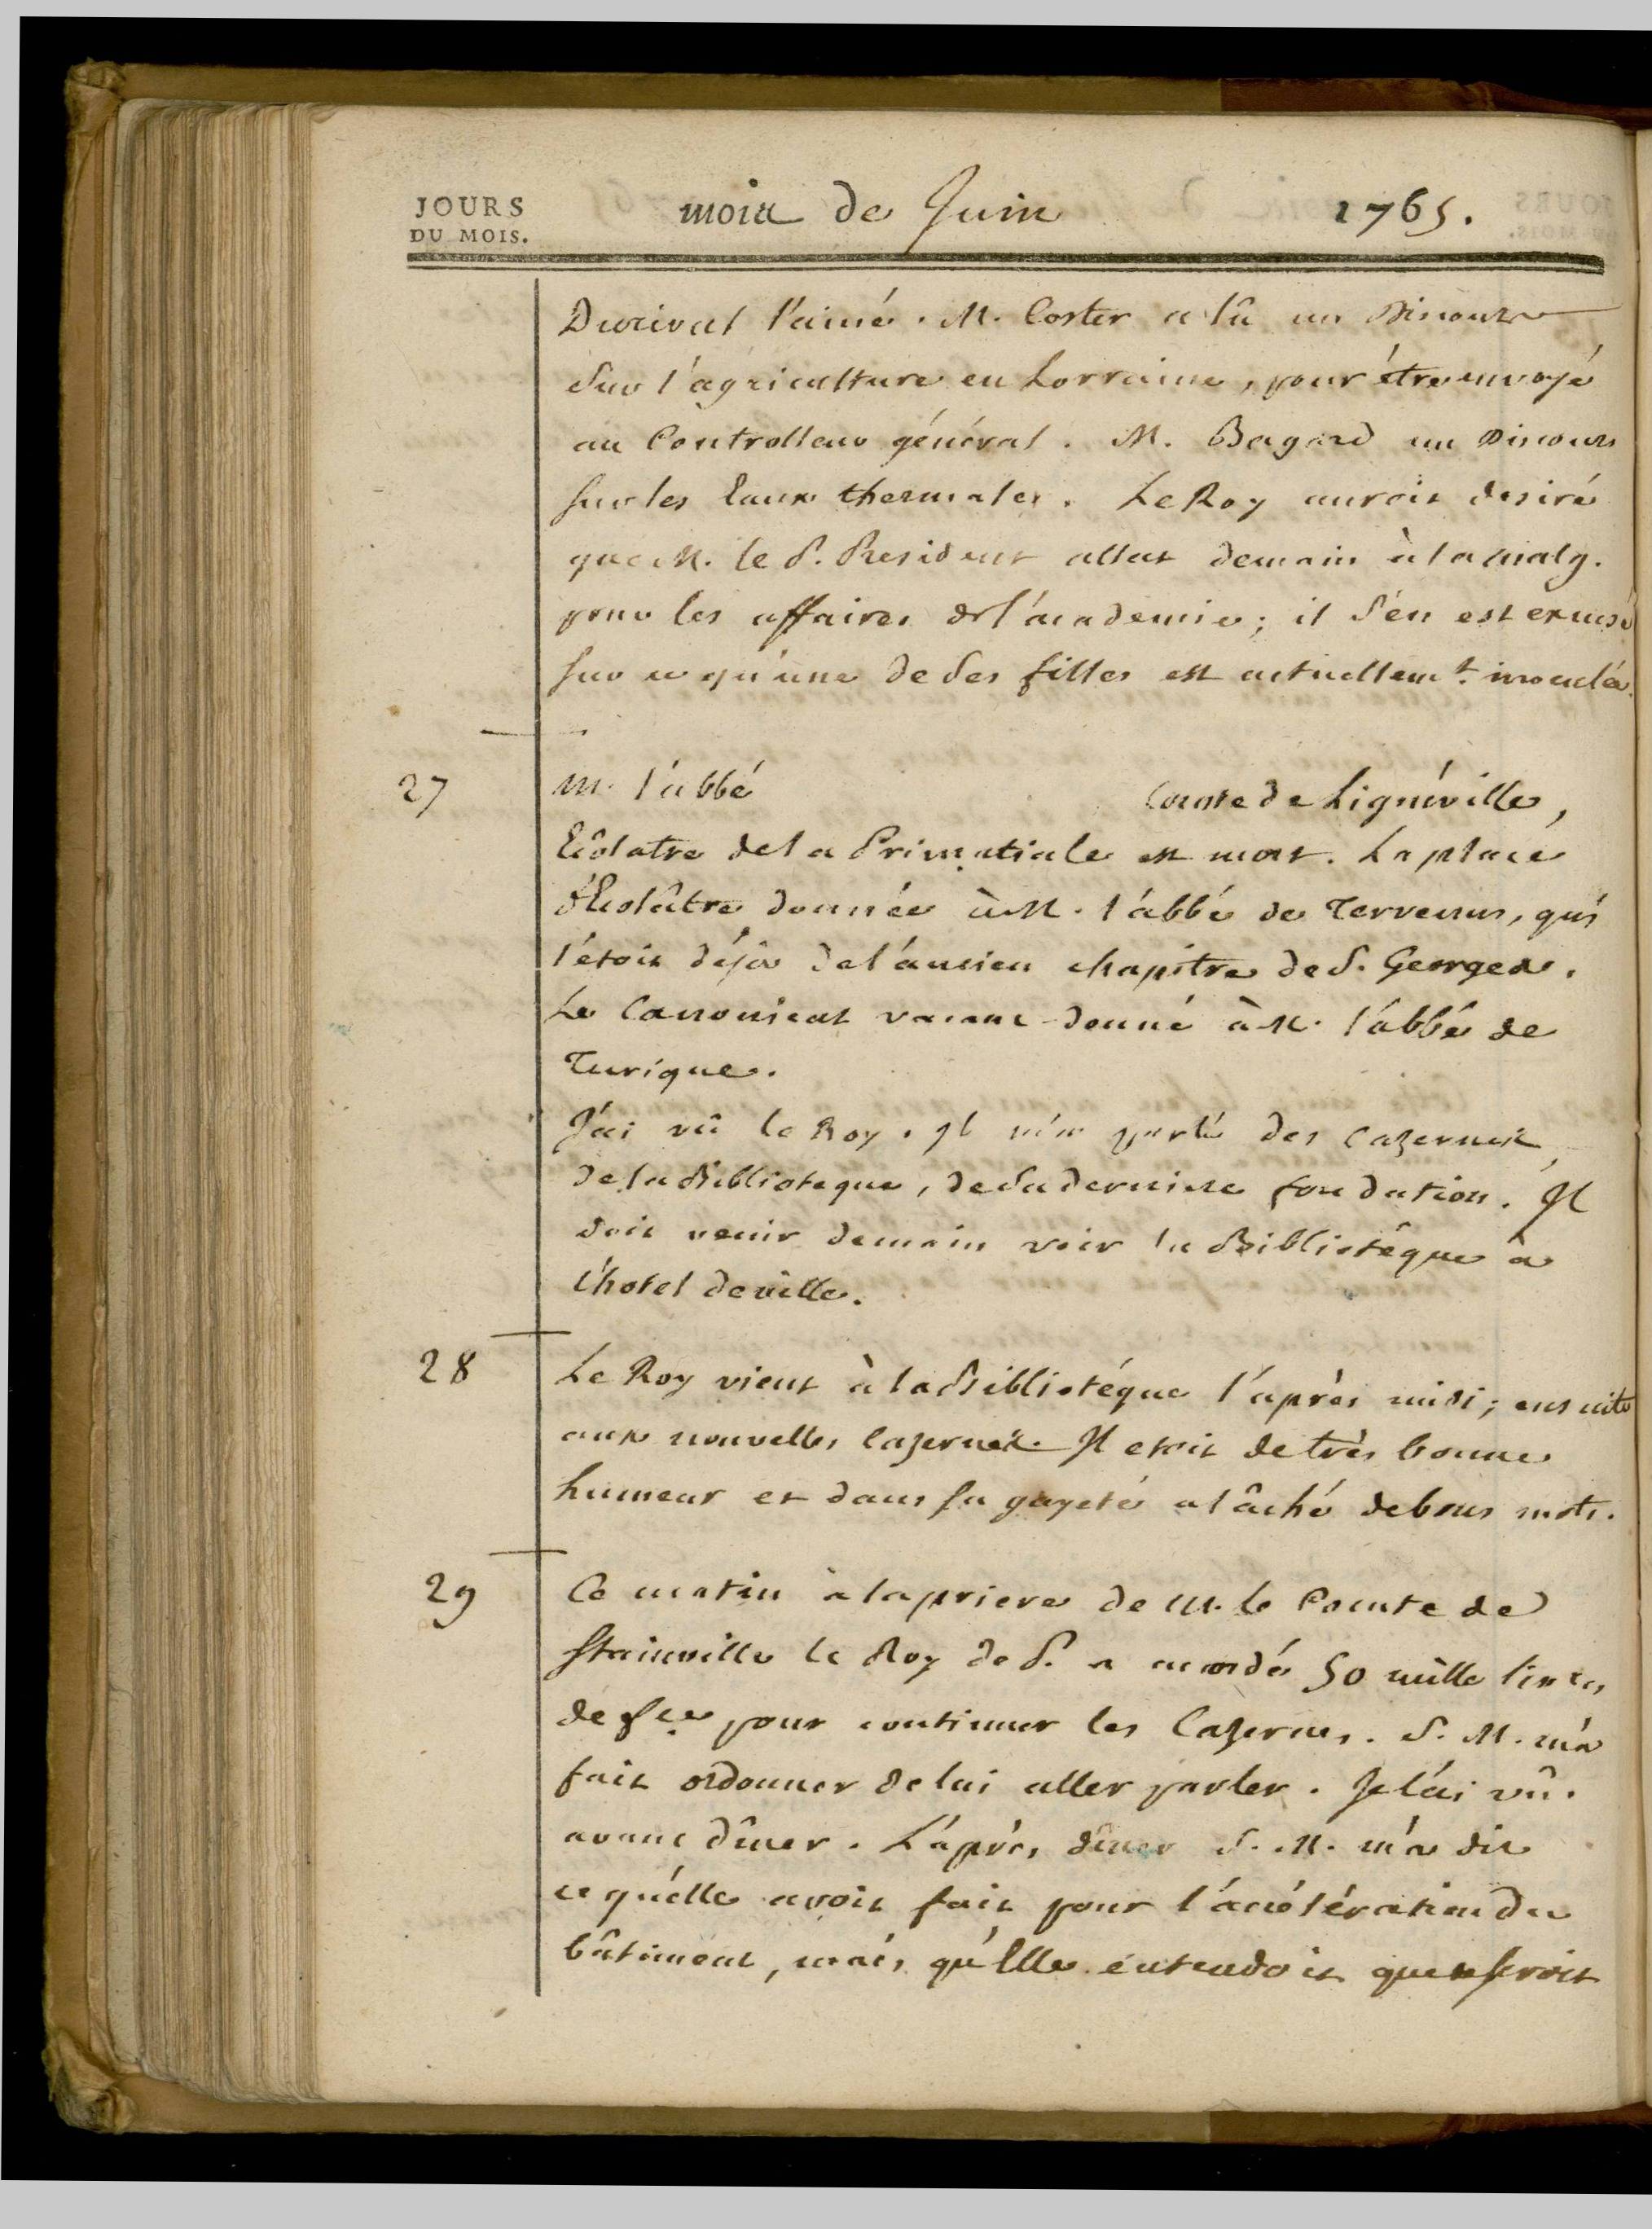 JOURS
DU MOIS.
mois de Juin 1765.
Durival l'ainé. M. Coster a lû un Discours
sur l'agriculture en Lorraine, pour être envoyé
au Controlleur général. M. Bagard un Discours
sur les Eaux thermales. Le Roy auroit desiré
que M. le P. President allat demain à la malg.
pour les affaires de l'academie; il s'en est excusé
sur ce qu'une de ses filles est actuellemt. inoculée.
27 M. l'abbé Comte de Lignéville,
Ecolatre de la Primatiale est mort. La place
d'Ecolâtre donnée à M. l'abbé de Tervenus, qui
l'étoit déja de l'ancien chapitre de S. Georges.
Le Canonicat vacant donné à M. l'abbé de
Turique.
J'ai vû le Roy. Il m'a parlé des Cazernes,
de la Biblioteque, de sa derniere fondation. Il
doit venir demain voir la Bibliotêque à
l'hotel de ville.
28 Le Roy vient à la Bibliotéque l'après midi; ensuite
aux nouvelles Cazernes. Il etoit de très bonne
humeur et dans sa gayeté a lâché de bons mots.
29 Ce matin à la priere de M. le Comte de
Stainville le Roy de P. a accordé 50 mille livres
de fce. pour continuer les Cazernes. S. M. m'a
fait ordonner de lui aller parler. Je l'ai vû
avant dîner. L'après dîner S. M. m'a dit
ce qu'elle avoit fait pour l'accélération du
bâtiment, mais qu'Elle entendoit que ce seroit